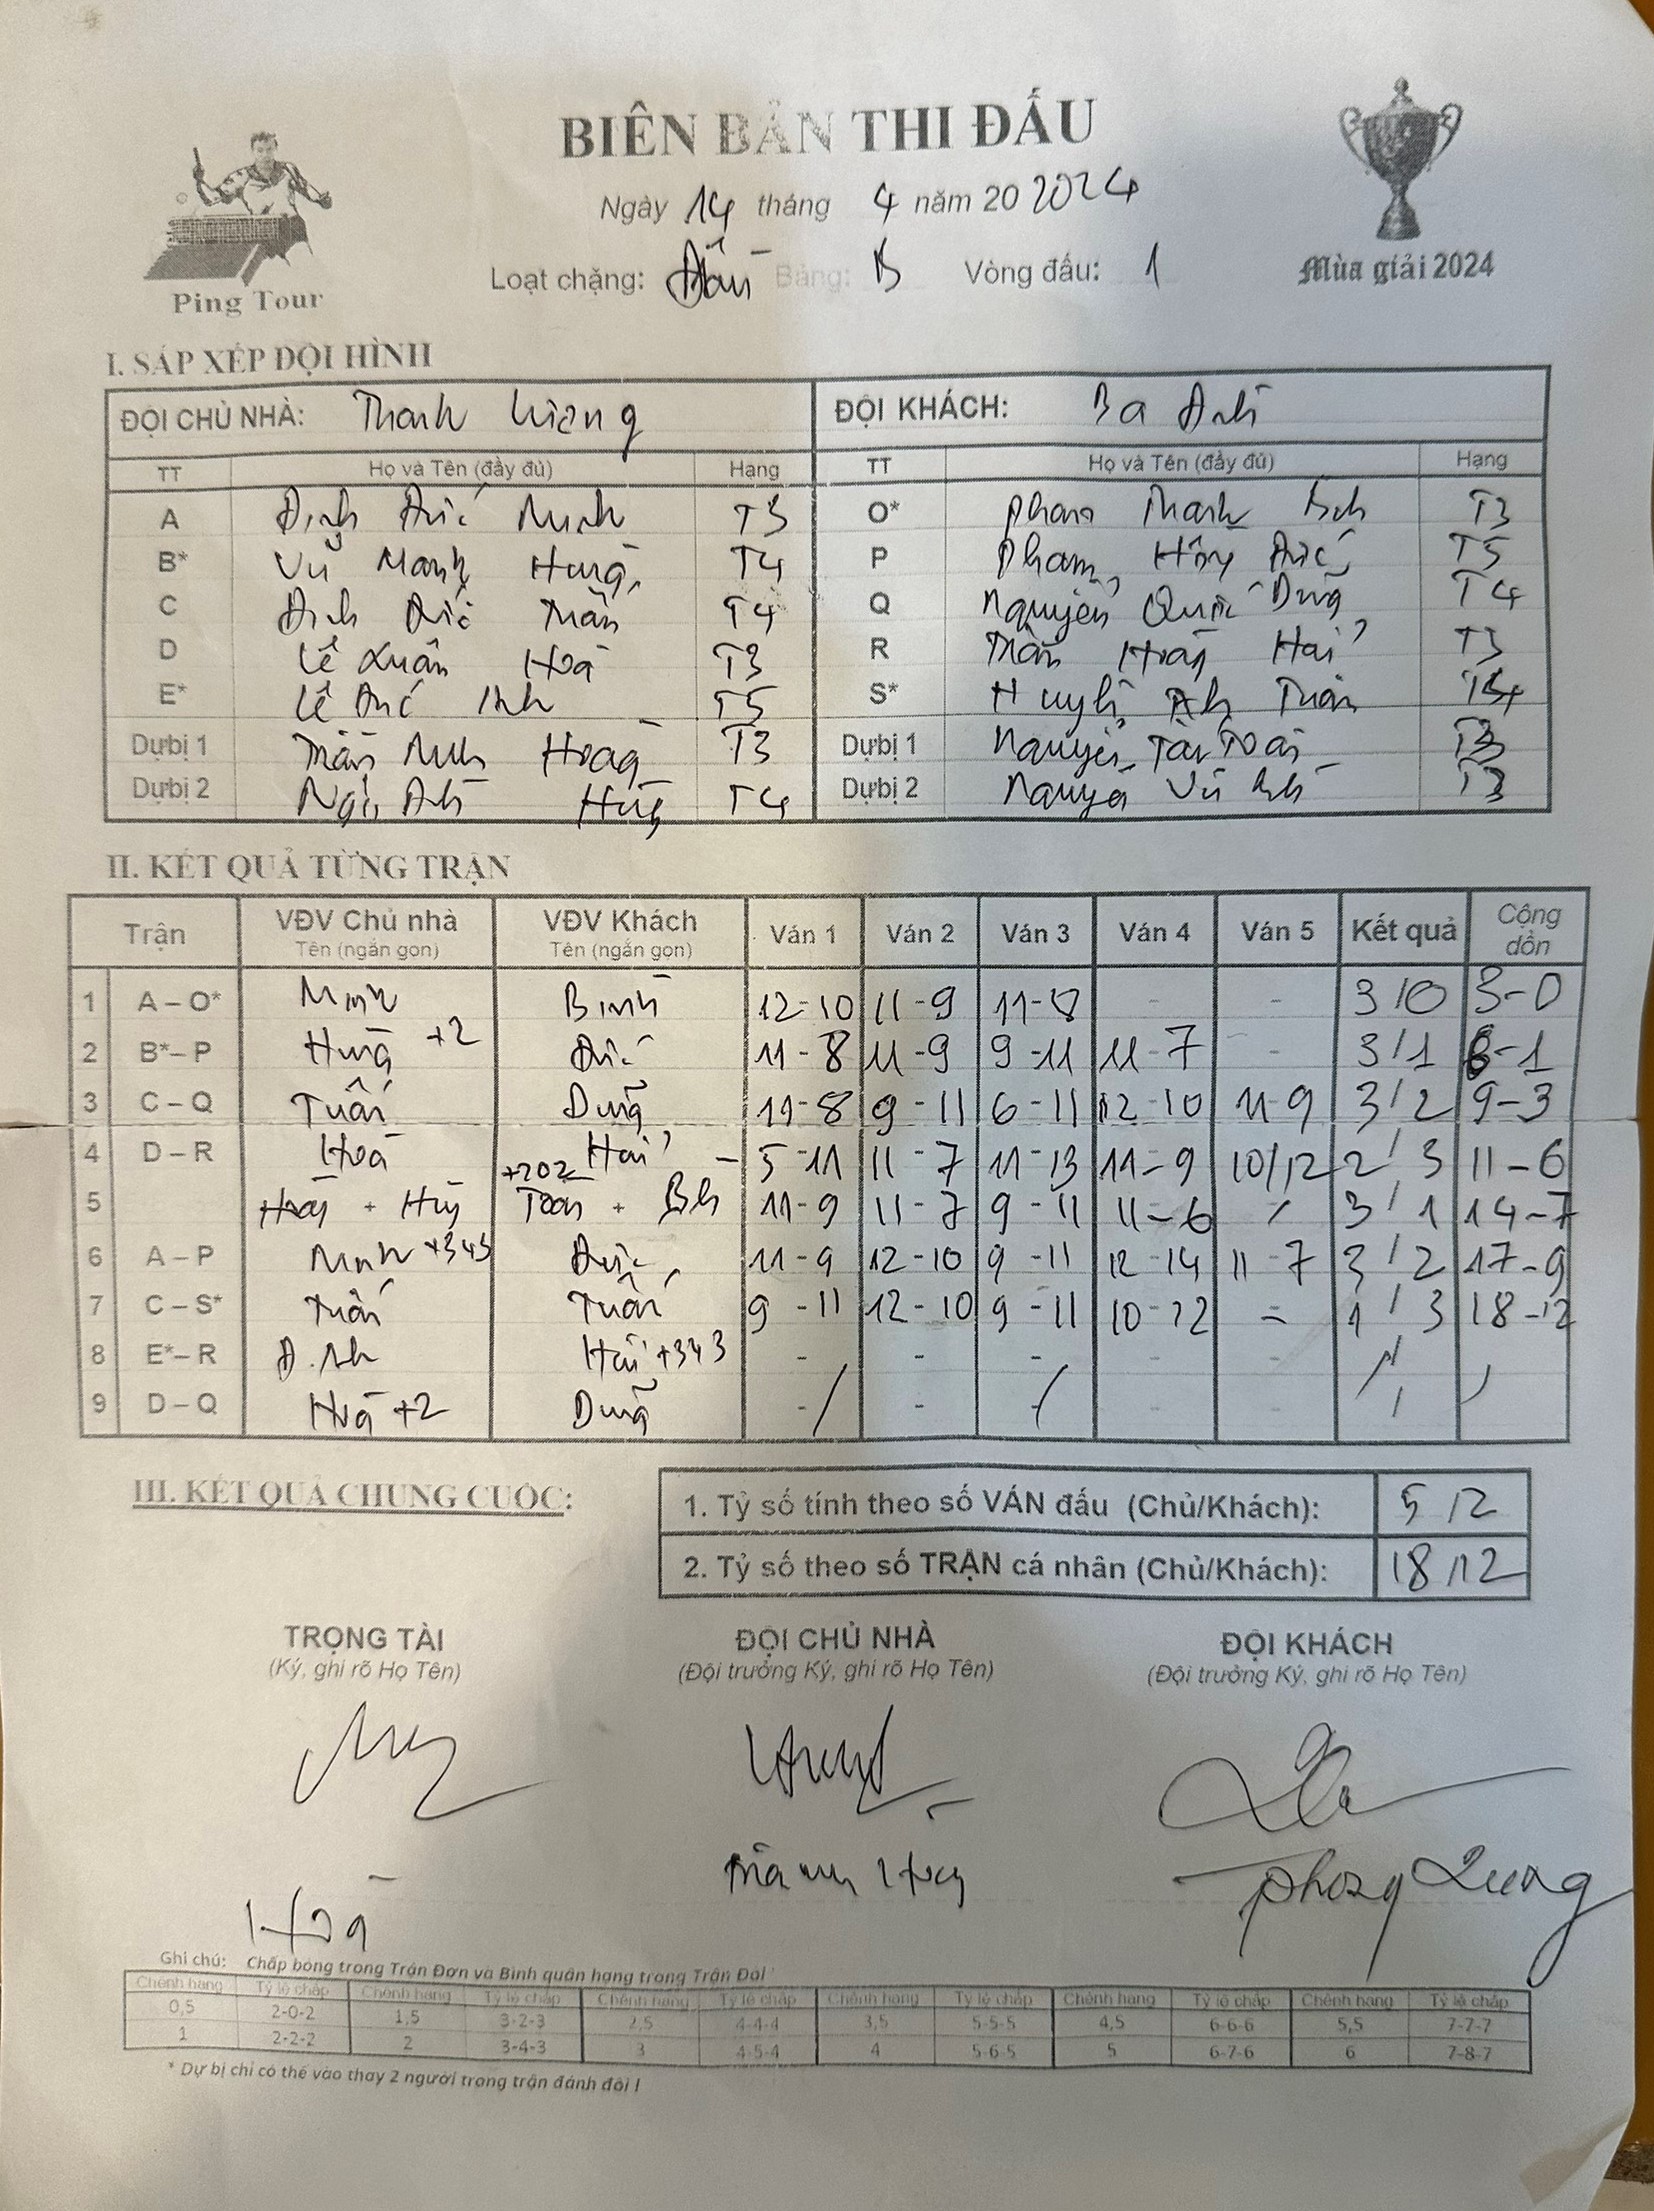 BIÊN BẢN THI ĐẤU
Ngày 14 tháng 4 năm 20 2024
Loạt chặng: Bảng: B Vòng đấu: 1
Ping Tour
Mùa giải 2024
I. SẮP XẾP ĐỘI HÌNH
ĐỘI CHỦ NHÀ: Thanh ĐỘI KHÁCH: Ba Anh
TT Họ và Tên (đầy đủ) Hạng TT Họ và Tên (đầy đủ) Hạng
A Đinh Đức Minh T3 O* Phan Thanh T3
B* Vũ Mạnh Hùng T4 P Phạm Hồng Đức T5
C Đinh Đức Tuấn T4 Q Nguyễn Quốc Dũng T4
D Lê Xuân Hoà T3 R Trần Hoàng Hải T3
E* Lê Đức Anh T5 S* Huỳnh Anh Tuấn
Dự bị 1 Trần Minh Hoàng T3 Dự bị 1 Nguyễn Tài Toàn T3
Dự bị 2 Ngô Anh Hùng T4 Dự bị 2 Nguyễn Vũ Anh T3
II. KẾT QUẢ TỪNG TRẬN
Trận VĐV Chủ nhà VĐV Khách Ván 1 Ván 2 Ván 3 Ván 4 Ván 5 Kết quả Cộng dồn
Tên (ngắn gọn) Tên (ngắn gọn)
1 A – O* Minh Bình 12-10 11-9 11-8 - - 3/0 3-0
2 B* – P Hùng +2 Đức 11-8 11-9 9-11 11-7 - 3/1 6-1
3 C – Q Tuấn Dũng 11-8 9-11 6-11 12-10 11-9 3/2 9-3
4 D – R Hoà Hải 5-11 11-7 11-13 11-9 10/12 2/3 11-6
5 Hoàng + Hùng +202 Toàn + Bình 11-9 11-7 9-11 11-6 / 3/1 14-7
6 A – P Minh +343 Đức 11-9 12-10 9-11 12-14 11-7 3/2 17-9
7 C – S* Tuấn Tuấn 9-11 12-10 9-11 10-12 - 1/3 18-12
8 E* – R Đ.Anh Hải +343 - - - - - /
9 D – Q Hoà +2 Dũng - - - - - /
III. KẾT QUẢ CHUNG CUỘC:
1. Tỷ số tính theo số VÁN đấu (Chủ/Khách): 5/2
2. Tỷ số theo số TRẬN cá nhân (Chủ/Khách): 18/12
TRỌNG TÀI ĐỘI CHỦ NHÀ ĐỘI KHÁCH
(Ký, ghi rõ Họ Tên) (Đội trưởng Ký, ghi rõ Họ Tên) (Đội trưởng Ký, ghi rõ Họ Tên)
Hoà Phong
Ghi chú: Chấp bóng trong Trận Đơn và Bình quân hạng trong Trận Đôi
Chênh hạng Tỷ lệ chấp Chênh hạng Tỷ lệ chấp Chênh hạng Tỷ lệ chấp Chênh hạng Tỷ lệ chấp Chênh hạng Tỷ lệ chấp Chênh hạng Tỷ lệ chấp
0,5 2-0-2 1,5 3-2-3 2,5 4-4-4 3,5 5-5-5 4,5 6-6-6 5,5 7-7-7
1 2-2-2 2 3-4-3 3 4-5-4 4 5-6-5 5 6-7-6 6 7-8-7
* Dự bị chỉ có thể vào thay 2 người trong trận đánh đôi !